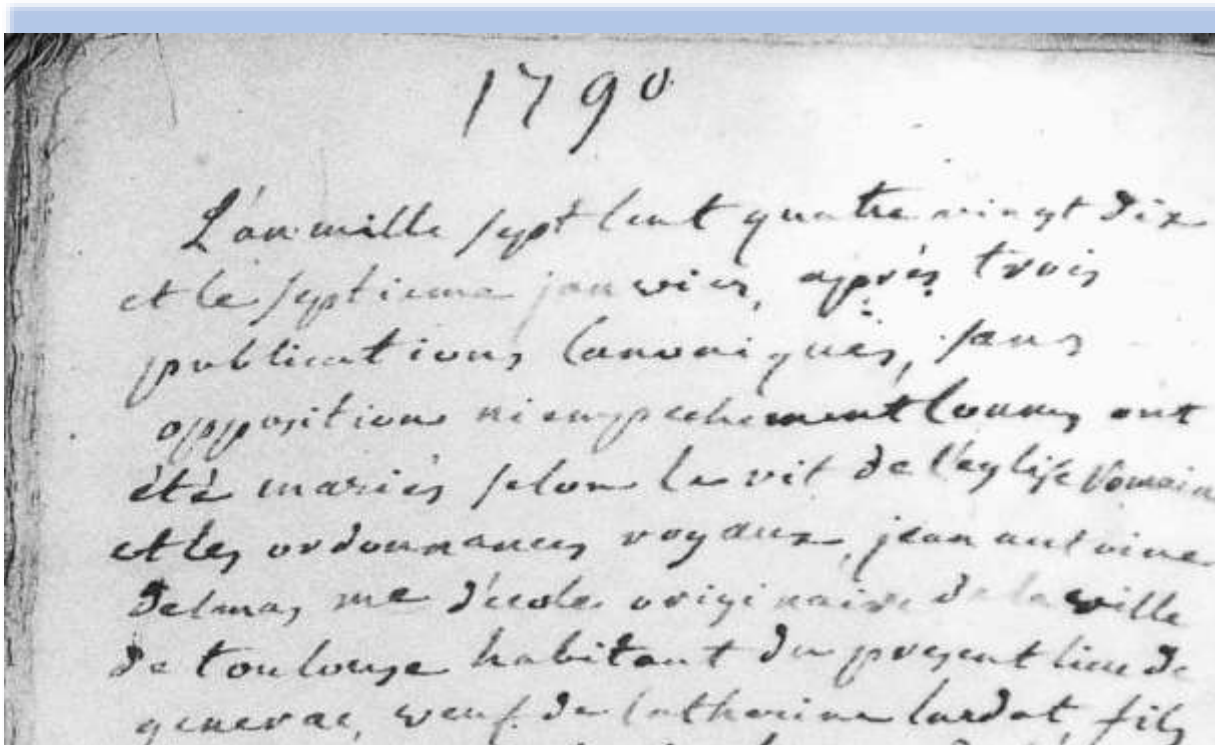 1790
L'an mille sept cent quatre vingt dix
et le septieme janvier, après trois
publications canoniques, sans
opposition ni empechement connus ont
été mariés selon le rit de l'eglise Romain
et les ordonnances royaux, jean antoine
Delmas me d'école originaire de la ville
de toulouse habitant du present lieu de
generac, veuf de Catherine lardat, fils